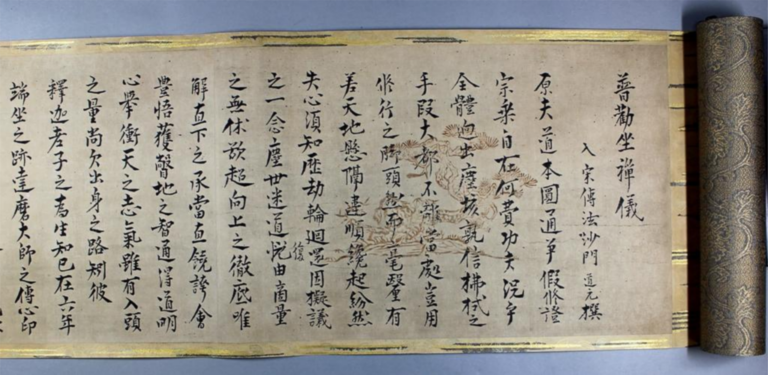 普勸坐禪儀
入宋傳法沙門道元撰
原夫道本圓通爭假修證
宗乘自在何費功夫況乎
全體迥出塵埃孰信拂拭之
手段大都不離當處豈用
修行之脚頭然而毫釐有
差天地懸隔違順纔起紛然
失心須知歷劫輪迴還因擬議
之一念塵世迷道由商量
復
之無休欲超向上之徹底唯
解直下之承當直饒誇會
豐悟獲瞥地之智通得道明
心擧衝天之志氣雖有入頭
之量尚欠出身之路矧彼
釋迦老子之為生知已在六年
端坐之跡達磨大師之傳心印